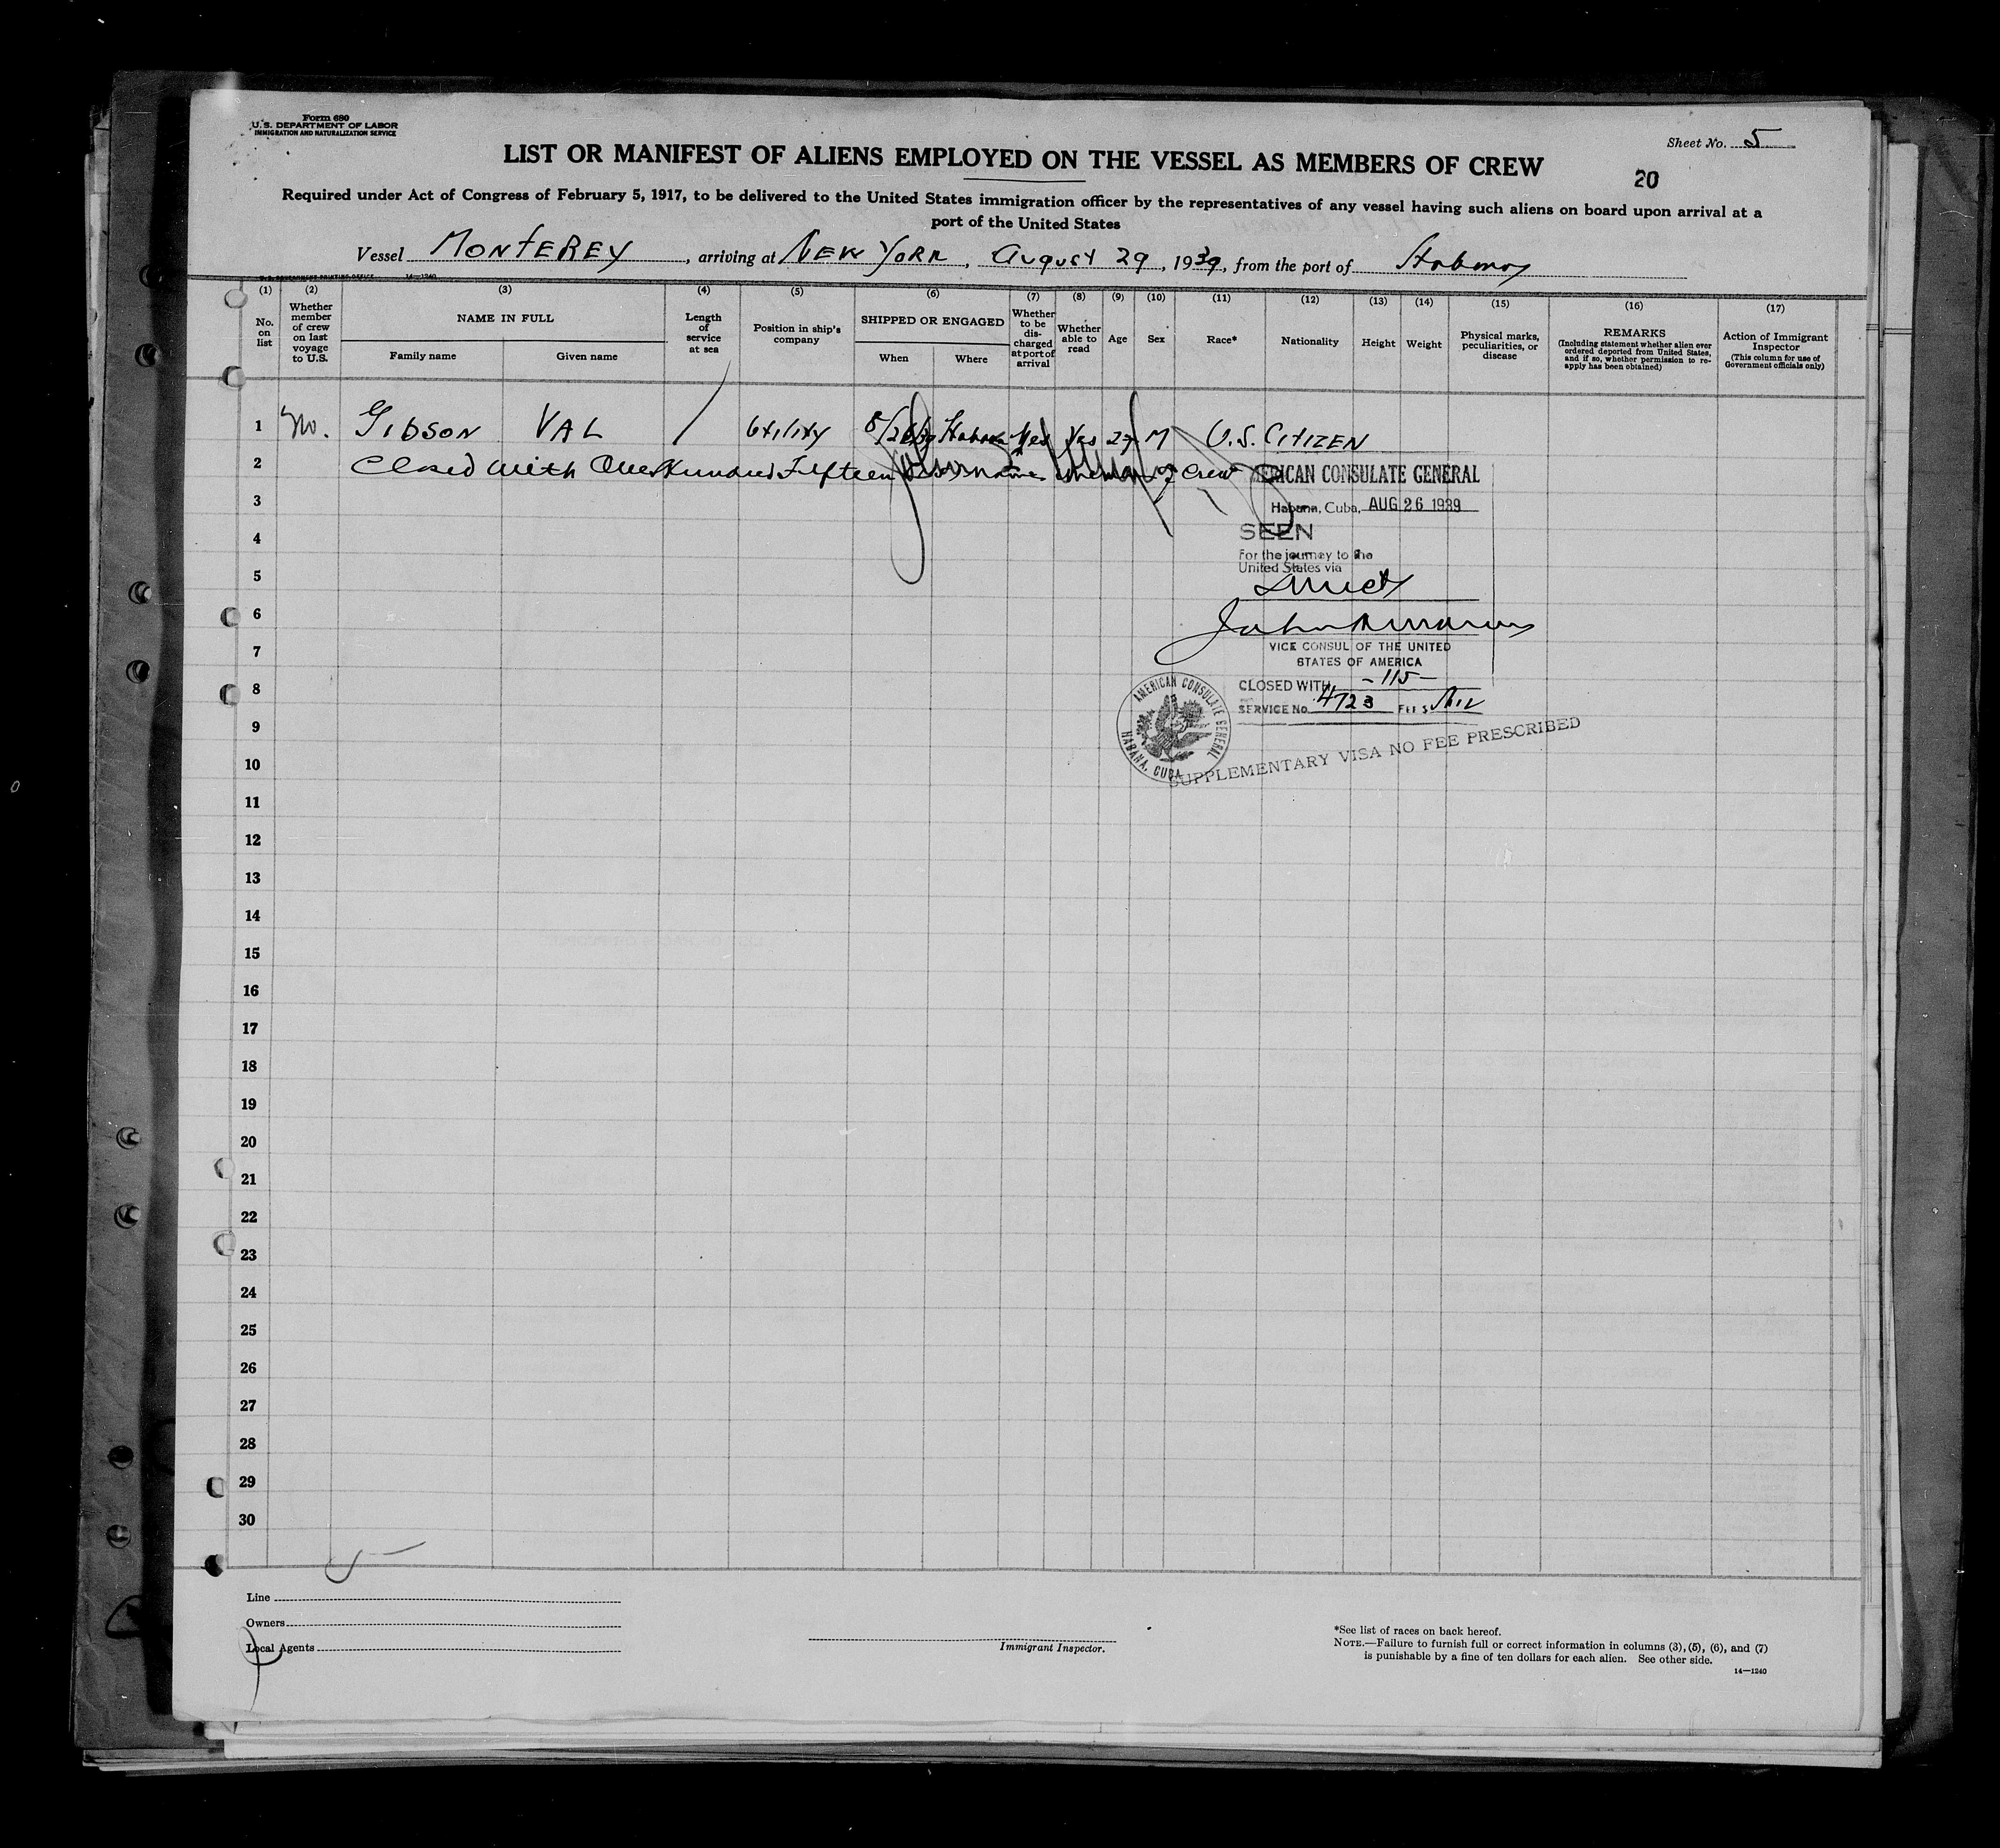 Form 680
U.S. DEPARTMENT OF LABOR
IMMIGRATION AND NATURALIZATION SERVICE
Sheet No. 5
LIST OR MANIFEST OF ALIENS EMPLOYED ON THE VESSEL AS MEMBERS OF CREW
20
Required under Act of Congress of February 5, 1917, to be delivered to the United States immigration officer by the representatives of any vessel having such aliens on board upon arrival at a
port of the United States
Vessel MONTEREY, arriving at NEW YORK, August 29, 1939, from the port of
U. S. GOVERNMENT PRINTING OFFICE 14—1240
(1) (2) (3) (4) (5) (6) (7) (8) (9) (10) (11) (12) (13) (14) (15) (16) (17)
No. on list
Whether member of crew on last voyage to U.S.
NAME IN FULL
Family name
Given name
Length of service at sea
Position in ship's company
SHIPPED OR ENGAGED
When
Where
Whether to be discharged at port of arrival
Whether able to read
Age
Sex
Race*
Nationality
Height
Weight
Physical marks, peculiarities, or disease
REMARKS
(Including statement whether alien ever ordered deported from United States, and if so, whether permission to reapply has been obtained)
Action of Immigrant Inspector
(This column for use of Government officials only)
1 No. GIBSON VAL / Utility 8/26/39 Habana Yes Yes 27 M U.S. CITIZEN
2 Closed with One Hundred Fifteen of Crew
AMERICAN CONSULATE GENERAL
3
Habana, Cuba, AUG 26 1939
SEEN
4
For the journey to the
United States via
5
Direct
6
7
VICE CONSUL OF THE UNITED
STATES OF AMERICA
8
CLOSED WITH -115-
SERVICE No. 4723 FEES
AMERICAN CONSULATE GENERAL
HABANA, CUBA
9
SUPPLEMENTARY VISA NO FEE PRESCRIBED
10
11
12
13
14
15
16
17
18
19
20
21
22
23
24
25
26
27
28
29
30
Line
Owners
Local Agents
Immigrant Inspector.
*See list of races on back hereof.
NOTE.—Failure to furnish full or correct information in columns (3), (5), (6), and (7)
is punishable by a fine of ten dollars for each alien. See other side.
14—1240